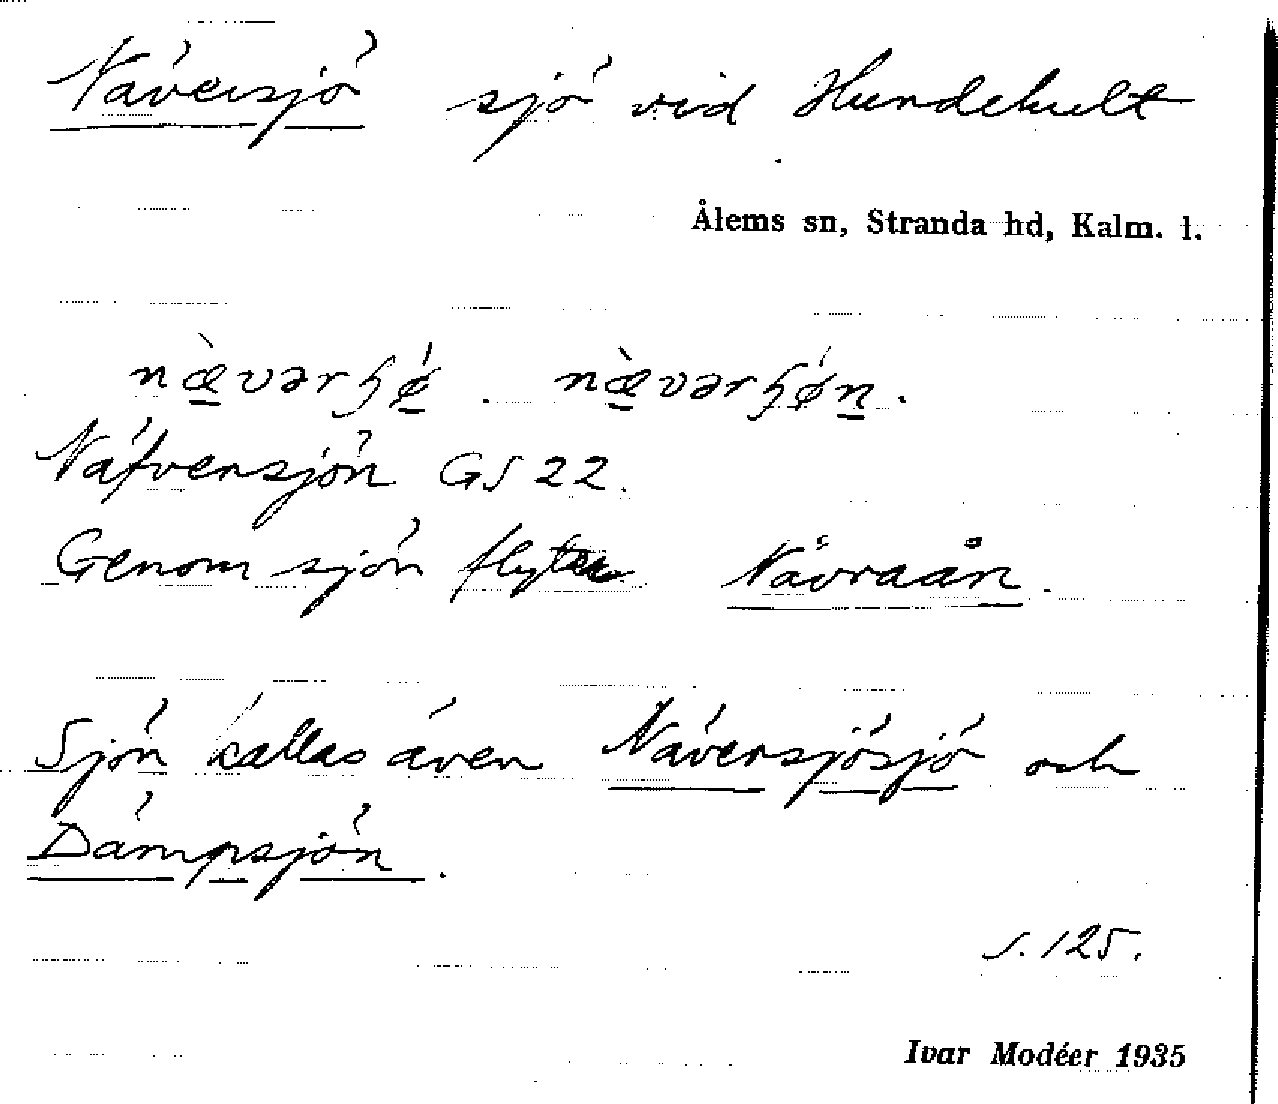 Näversjö sjö vid Hundekult
Ålems sn, Stranda hd, Kalm. l.
næ̀vərɧǿ. næ̀vərɧǿn.
Näfversjön GS 22.
Genom sjön flyter Nåvraån.
Sjön kallas även Näversjösjö och
Dämpsjön.
s. 125.
Ivar Modéer 1935